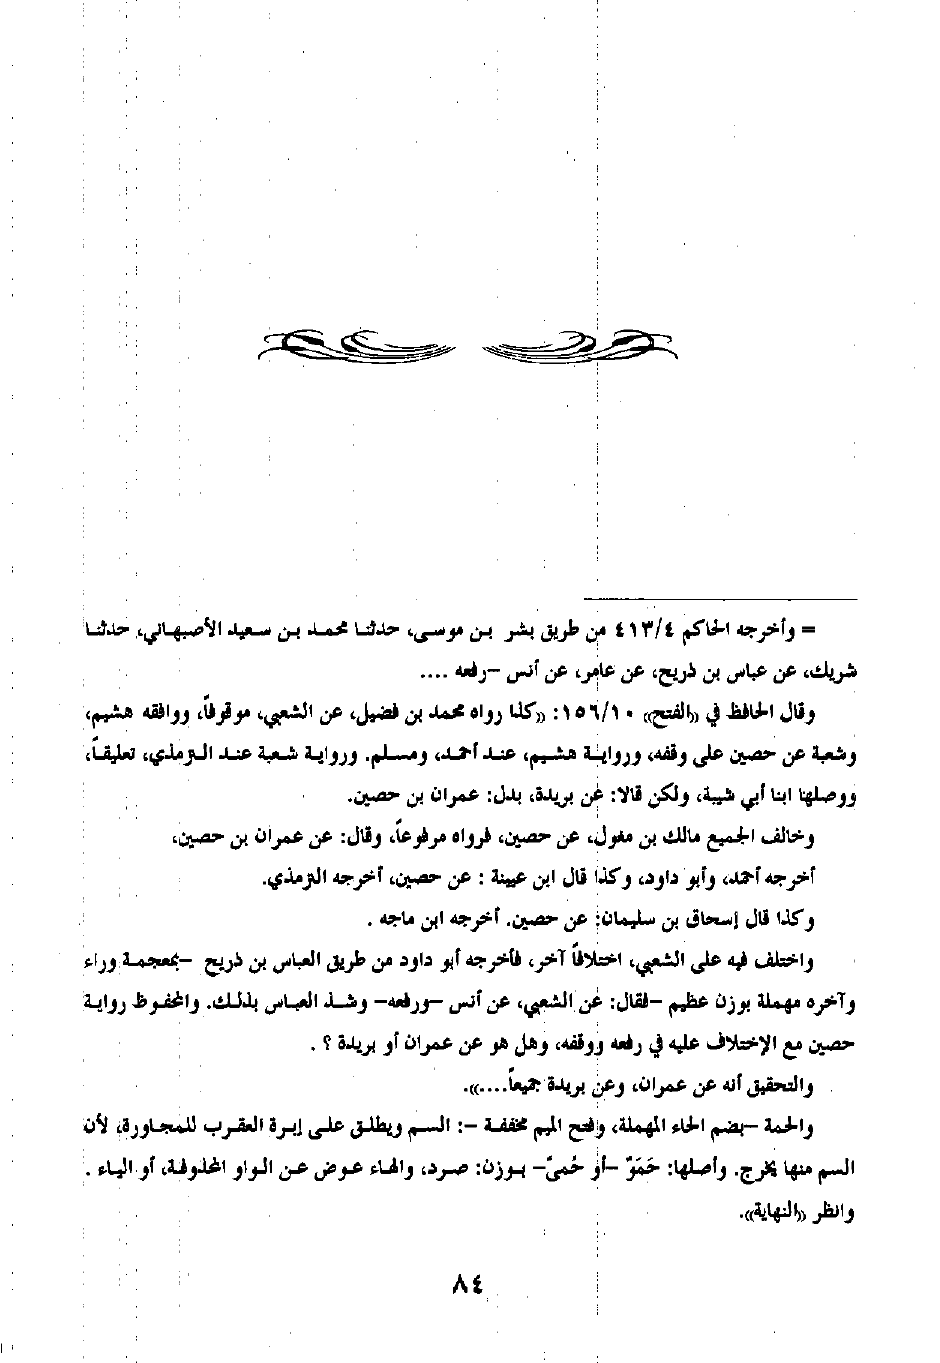 = وأخرجه الحاكم ٤١٣/٤ من طريق بشر بن موسى، حدثنا محمد بن سعيد الأصبهاني، حدثنا
شريك، عن عباس بن ذريح، عن عامر، عن أنس –رفعه ....
وقال الحافظ في «الفتح» ١٥٦/١٠: «كذا رواه محمد بن فضيل، عن الشعبي، موقوفاً، ووافقه هشيم،
وشعبة عن حصين على وقفه، ورواية هشيم، عند أحمد، ومسلم. ورواية شعبة عند الترمذي، تعليقاً،
ووصلها ابنا أبي شيبة، ولكن قالا: عن بريدة، بدل: عمران بن حصين.
وخالف الجميع مالك بن مغول، عن حصين، فرواه مرفوعاً، وقال: عن عمران بن حصين،
أخرجه أحمد، وأبو داود، وكذا قال ابن عيينة : عن حصين، أخرجه الترمذي.
وكذا قال إسحاق بن سليمان: عن حصين. أخرجه ابن ماجه .
واختلف فيه على الشعبي، اختلافاً آخر، فأخرجه أبو داود من طريق العباس بن ذريح –بمعجمة وراء
وآخره مهملة بوزن عظيم –فقال: عن الشعبي، عن أنس –ورفعه– وشذ العباس بذلك. والمحفوظ رواية
حصين مع الإختلاف عليه في رفعه ووقفه، وهل هو عن عمران أو بريدة ؟ .
والتحقيق أنه عن عمران، وعن بريدة جميعاً....».
والحمة –بضم الحاء المهملة، وفتح الميم مخففة –: السم ويطلق على إبرة العقرب للمجاورة، لأن
السم منها يخرج. وأصلها: حَمَوٌ –أو حُمىٌ– بوزن: صرد، والهاء عوض عن الواو المحذوفة، أو الياء .
وانظر «النهاية».
٨٤